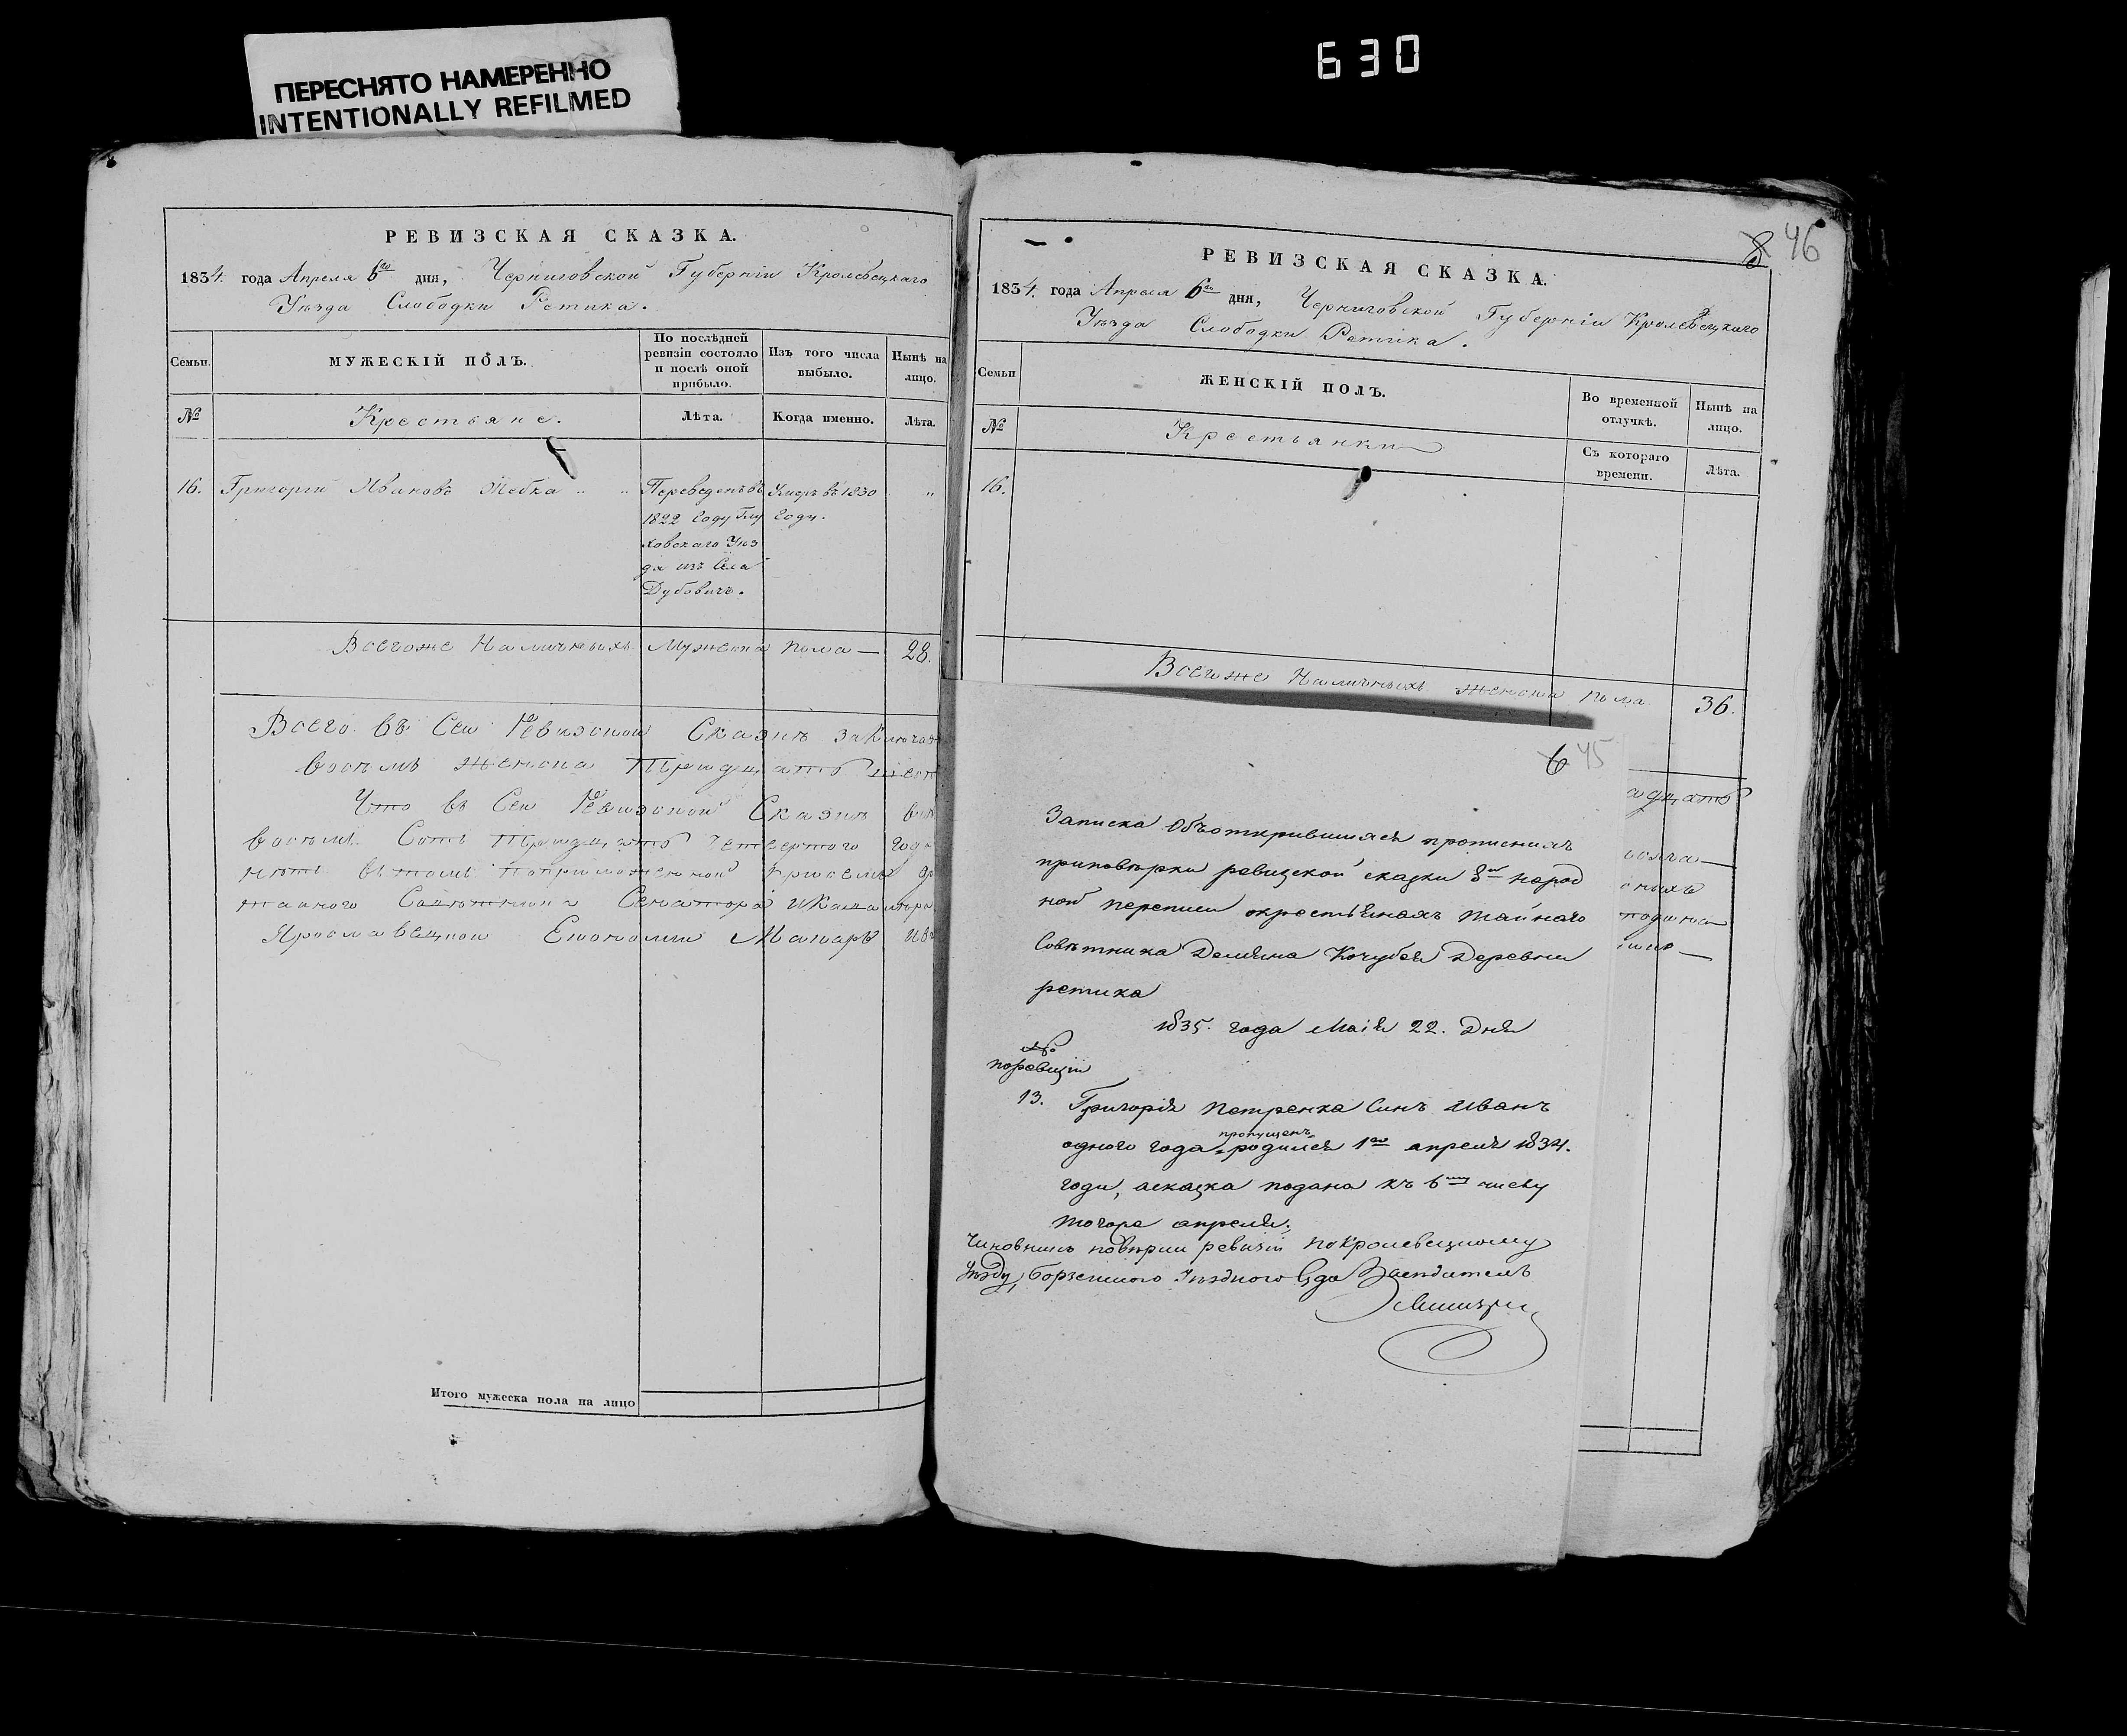 ПЕРЕСНЯТО НАМЕРЕННО
INTENTIONALLY REFILMED
630
РЕВИЗСКАЯ СКАЗКА.
1834. года Апреля 6го дня, Черниговской Губерніи Кролевецкаго
Уѣзда Слободки Ретика.
Семьи.
МУЖЕСКІЙ ПОЛЪ.
По послѣдней
ревизіи состояло
и послѣ оной
прибыло.
Изъ того числа
выбыло.
Нынѣ на
лицо.
№
Крестьяне.
Лѣта.
Когда именно.
Лѣта.
16. Григорій Ивановъ
Переведенъ въ
1822 году Глу
ховскаго Уѣз
да изъ Села
Дубовичъ.
Умеръ въ 1830
году.
"
Всегоже Наличныхъ Мужеска пола — 28.
Всего въ Сей Ревизской Сказкѣ заключае
восемь женска тридцать шест
Что въ Сей Ревизской Сказкѣ
восемь Сотъ тридцать четвертого года
нѣтъ въ томъ
тайного Совѣтника Сенатора и Камергера
Ярославецкой Економіи
Итого мужеска пола на лицо
8 46
РЕВИЗСКАЯ СКАЗКА.
1834. года Апреля 6го дня, Черниговской Губерніи Кролевецкаго
Уѣзда Слободки Ретика.
Семьи
ЖЕНСКІЙ ПОЛЪ.
Во временной
отлучкѣ.
Нынѣ на
лицо.
№
Крестьянки
Съ котораго
времени.
Лѣта.
16.
Всегоже Наличныхъ женска пола 36.
адцать
6 45
Записка Объоткрившихся прописнихъ
приповѣрки ревизской сказки 8й народ
ной переписи окрестьянахъ тайнаго
Совѣтника Демяна Кочубея Деревни
ретика
1835. года Маія 22. Дня
№
поревизіи
13. Григорія Петренка Синъ Иванъ
пропущенъ
одного года родился 1го апреля 1834.
года, аскаска подана къ 6му числу
тогоже апреля.
Чиновникъ повѣрки ревизіи по Кролевецкому
Уѣзду, Борзенского Уѣздного Суда Засѣдатель